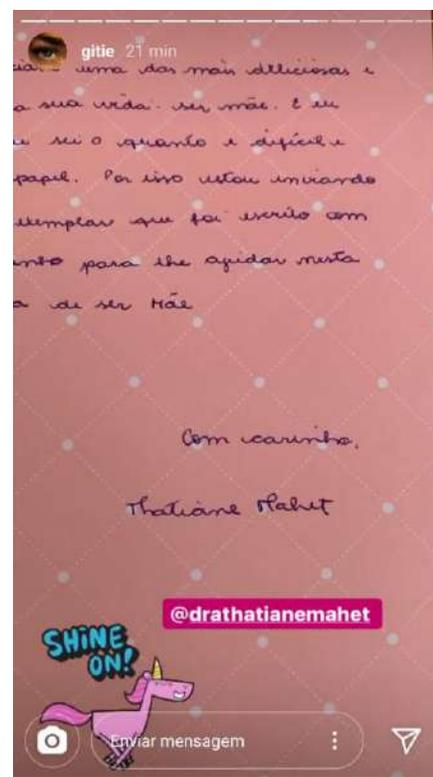 gitie 21 min
uma das mais deliciosas e
a sua vida. ser mãe. E eu
sei o quanto é difícil e
papel. Por isso estou enviando
exemplar que foi escrito com
para lhe ajudar nesta
a de ser Mãe
Com carinho,
Thatiane Mahet
@drathatianemahet
SHINE
ON!
Enviar mensagem